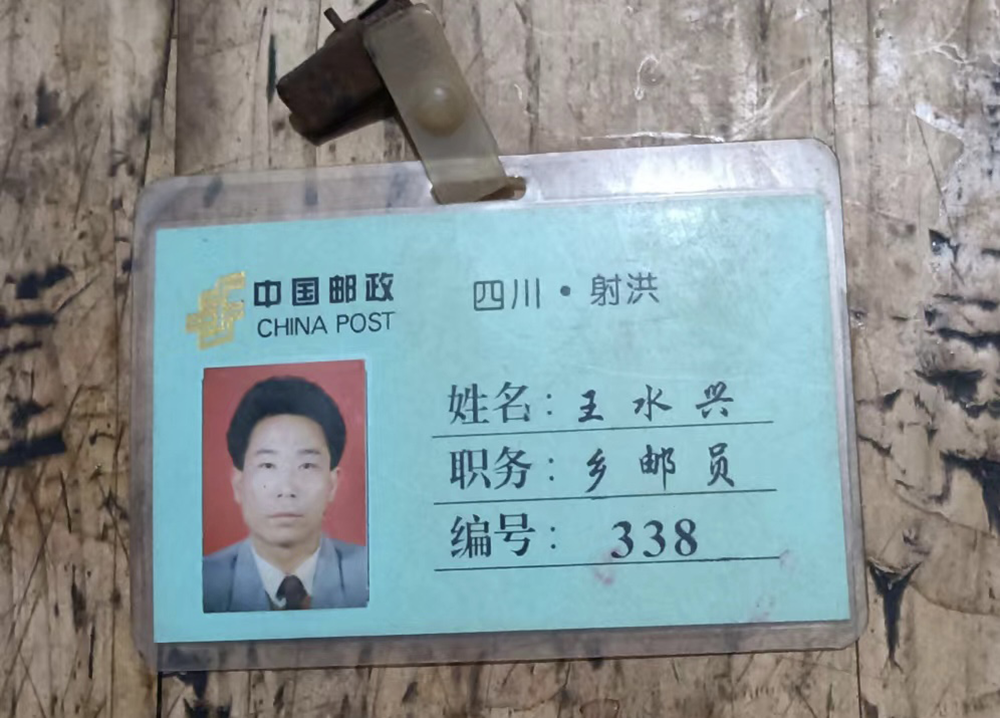 中国邮政
CHINA POST
四川·射洪
姓名：王水兴
职务：乡邮员
编号：338